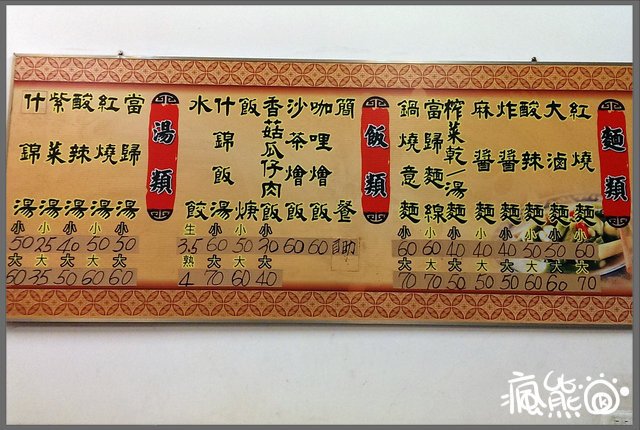 麵類
紅燒麵 小60 大70
大滷麵 小50 大60
酸辣麵 小50 大60
炸醬麵 小40 大50
麻醬麵 小40 大50
榨菜乾/湯麵 小40 大50
當歸麵線 小60 大70
鍋燒意麵 小60 大70
飯類
簡餐 自助
咖哩燴飯 60
沙茶燴飯 60
香菇瓜仔肉飯 小30 大40
飯焿 小50 大60
什錦飯湯 小60 大70
水餃 生3.5 熟4
湯類
當歸湯 小50 大60
紅燒湯 小50 大60
酸辣湯 小40 大50
紫菜湯 小25 大35
什錦湯 小50 大60
瘋熊